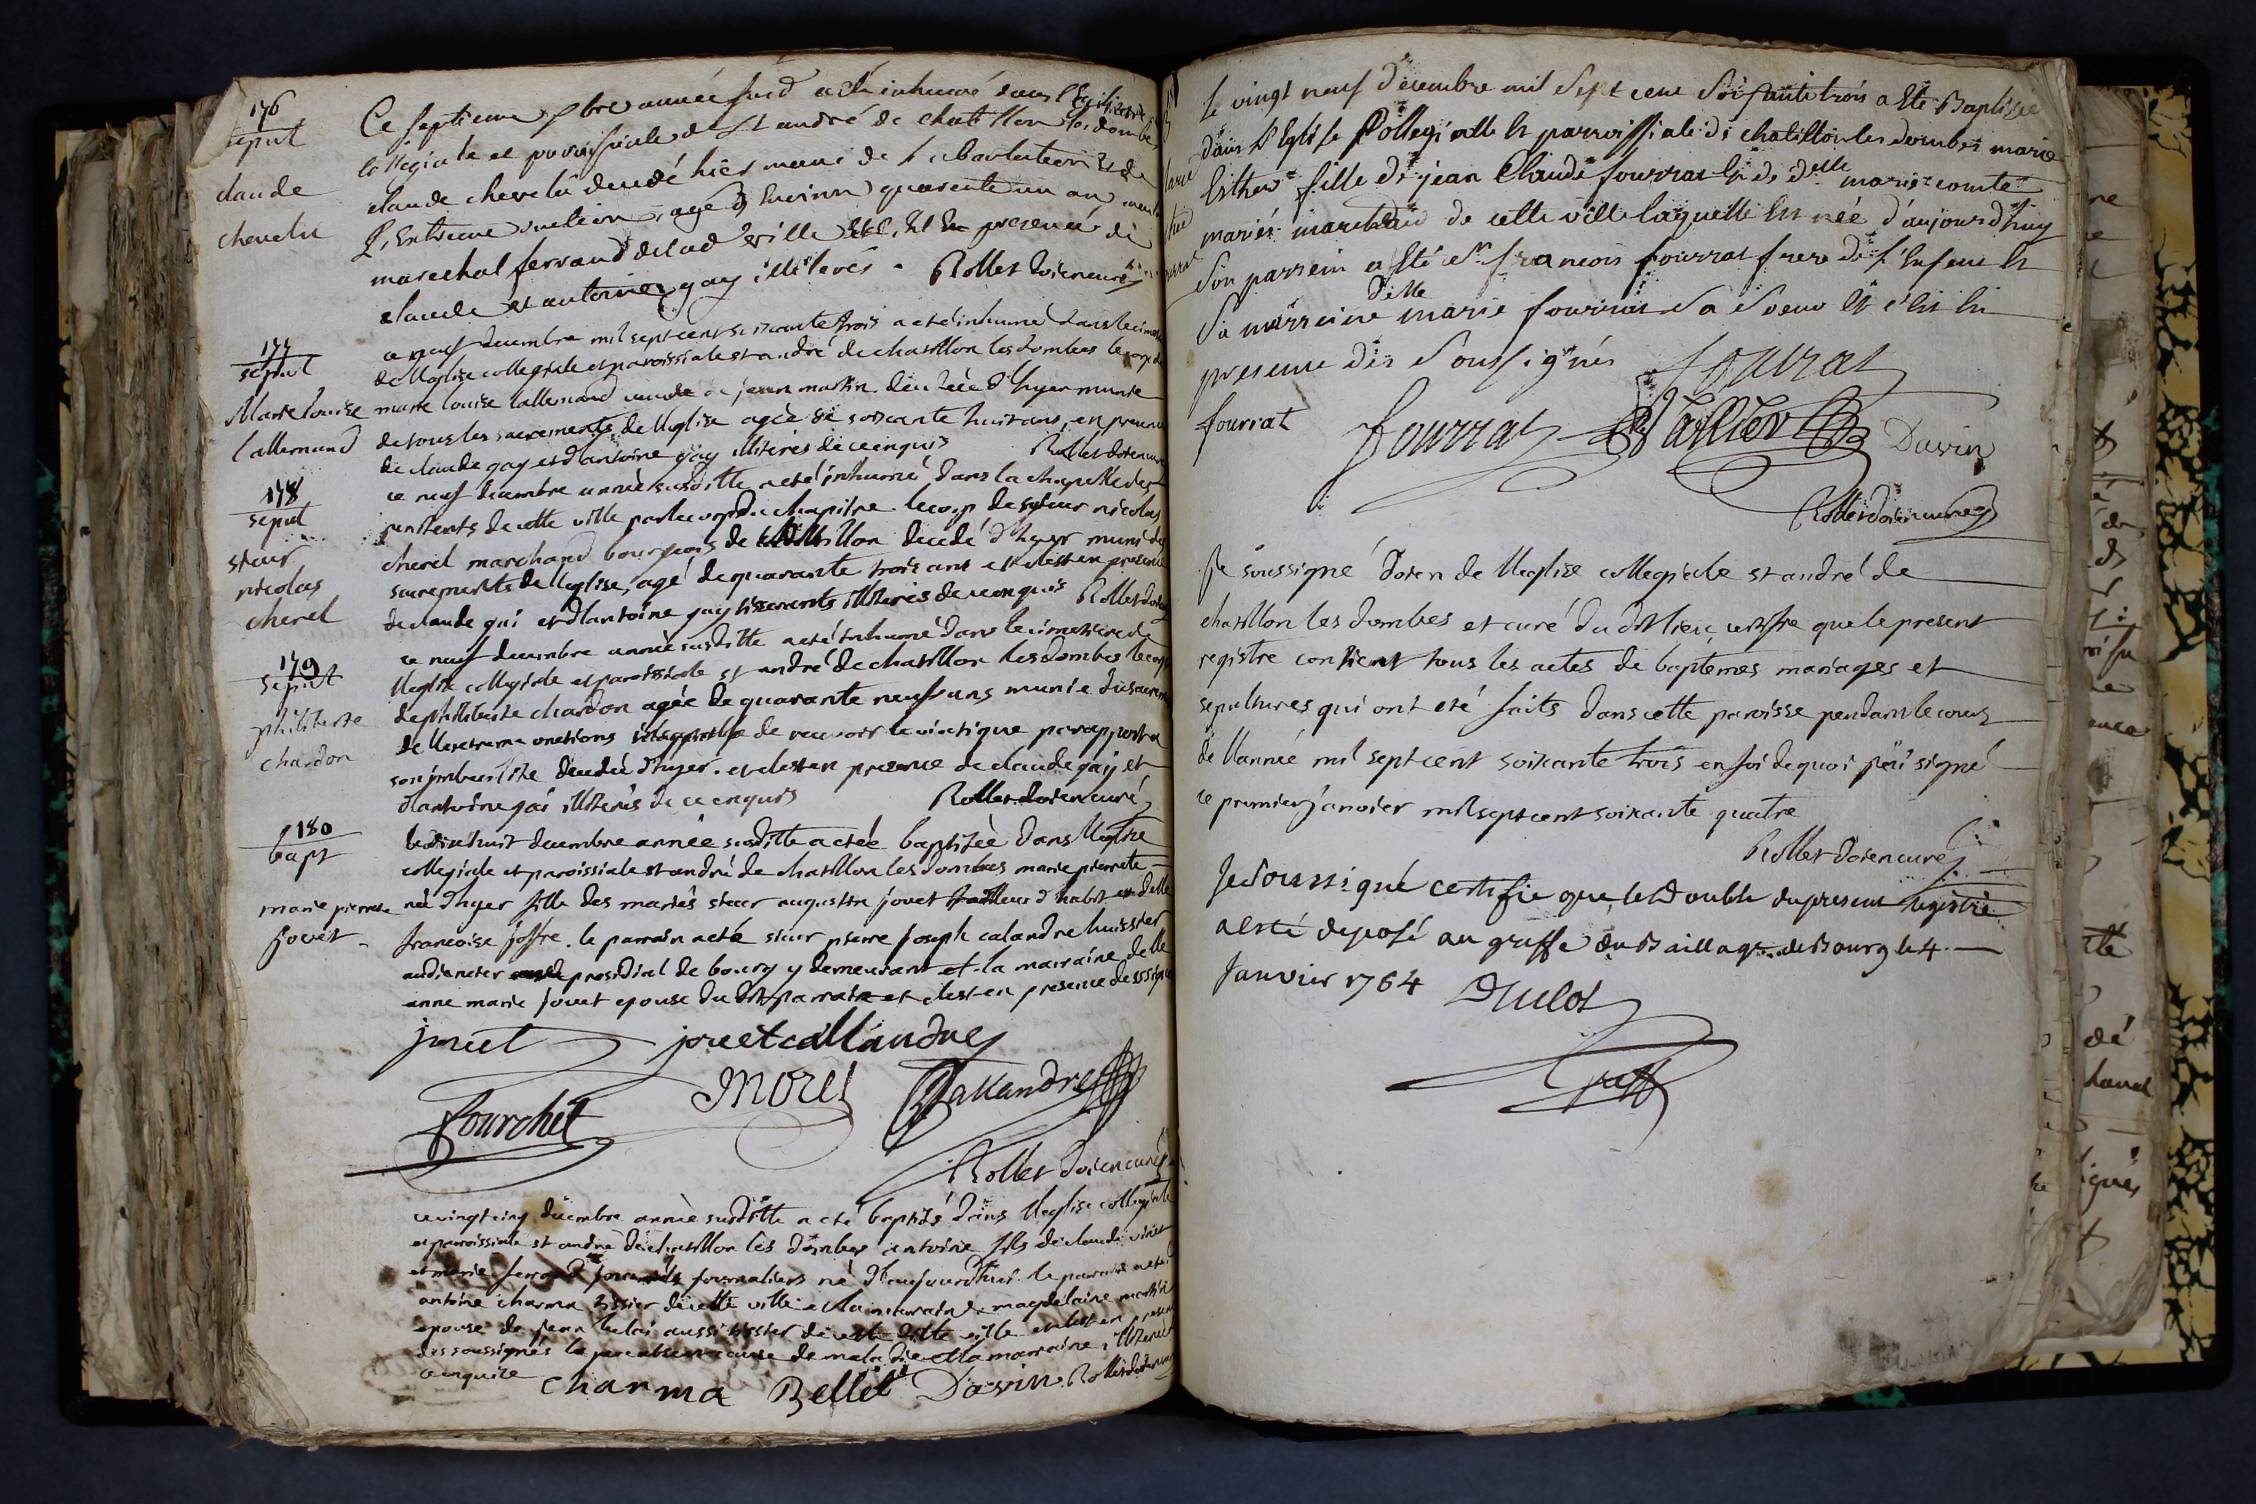 176
sepult
claude
chevelu
Ce septieme xbre année susd a été inhumé dans l'Eglise
collegiale et paroissiale de St andré de chatillon les dombes
claude chevelu decedé hier muni de l'absolution et de
l'Extreme onction, agé d'Environ quarente un an
marechal ferrand de lad ville Et C'Est En presence de
claude et antoine gay illiterés. Rollet doien curé
177
sepult
Marie louise
lallemand
ce neuf decembre mil sept cent soixante trois a eté inhumé dans le cimet
de lleglise collegiale et paroissiale st andré de chatillon les dombes le corps de
marie louise lallemand veuve de jean martin decedée d'hyer munie
de tous les sacrements de lleglise agée de soixante huit ans, en presence
de claude gay et d'antoine gay illiterés de ce enquis Rollet doien curé
178
sepult
sieur
nicolas
cherel
ce neuf decembre année susditte a eté inhumé dans la chapelle des
penitents de cette ville par le corps du chapitre le corp de sieur nicolas
cherel marchand bourgeois de chatillon decedé d'hyer muni des
sacrements de lleglise, agé de quarante trois ans et c'est en presence
de claude gai et d'antoine gay tisserants illiterés de ce enquis Rollet doien
179
sepult
philiberte
chardon
ce neuf decembre année susditte a eté inhumé dans le cimetiere de
lleglise collegiale et paroissiale st andré de chatillon les dombes le corp
de philiberte chardon agée de quarante neuf ans munie du sacrement
de llextreme onctions incapable de recevoir le viatique par apport a
son imbecilité decedée d'hyer. et c'est en presence de claude gay et
d'antoine gai illiterés de ce enquis Rollet doien curé
180
bapt
marie pierrete
jovet
le dixhuit decembre année susditte a eté baptisée dans lleglise
collegiale et paroissiale st andré de chatillon les dombes marie pierrete
née d'hyer fille des mariés sieur augustin jovet tailleur d'habit et delle
francoise joffre. le parrain a eté sieur pierre joseph calandre huissier
audiencier presidial de bourg y demeurant et la marraine delle
anne marie jovet epouse du dit parrain et c'est en presence des soussignés
jovet jovet callandre
Fourchet morel Callandre
Rollet doien curé
ce vingt cinq decembre année susditte a eté baptisé dans lleglise collegiale
et paroissiale st andré de chatillon les dombes antoine fils de claude
et marie ferrand journaliers né d'aujourd'hui. le parrain a eté
antoine charma tissier de cette ville et la marraine magdelaine martin
epouse de jean aussi tissier de cette ditte ville et c'est en presence
des soussignés le pere absent cause de maladie et la marraine illiterée
enquise charma Bellet Davin Rollet doien curé
Le vingt neuf decembre mil sept cent soixante trois a Eté Baptisée
dans L'Eglise Collegialle Et parroissiale de chatillon les dombes marie
Esther fille de jean Claude fourrat Et de delle marie comte
mariés marchand de cette ville laquelle Est née d'aujourdhuy
Son parrein a Eté sr francois fourrat frere de l'Enfent Et
Sa marreine delle marie fourrat Sa Soeur Et c'Est En
presence des Soussignés fourrat
fourrat fourrat Vallier Davin
Rollet doien curé
Je soussigné doien de lleglise collegiale st andré de
chatillon les dombes et curé du dit lieu, certifie que le present
registre contient tous les actes de baptemes mariages et
sepultures qui ont eté faits dans cette paroisse pendant le cours
de llannée mil sept cent soixante trois en foi de quoi j'ai signé
ce premier janvier mil sept cent soixante quatre
Rollet doien curé
Je Soussigné certifie que le Double du present registre
a esté deposé au greffe du Baillage de Bourg le 4
Janvier 1764 Duclos
Greff